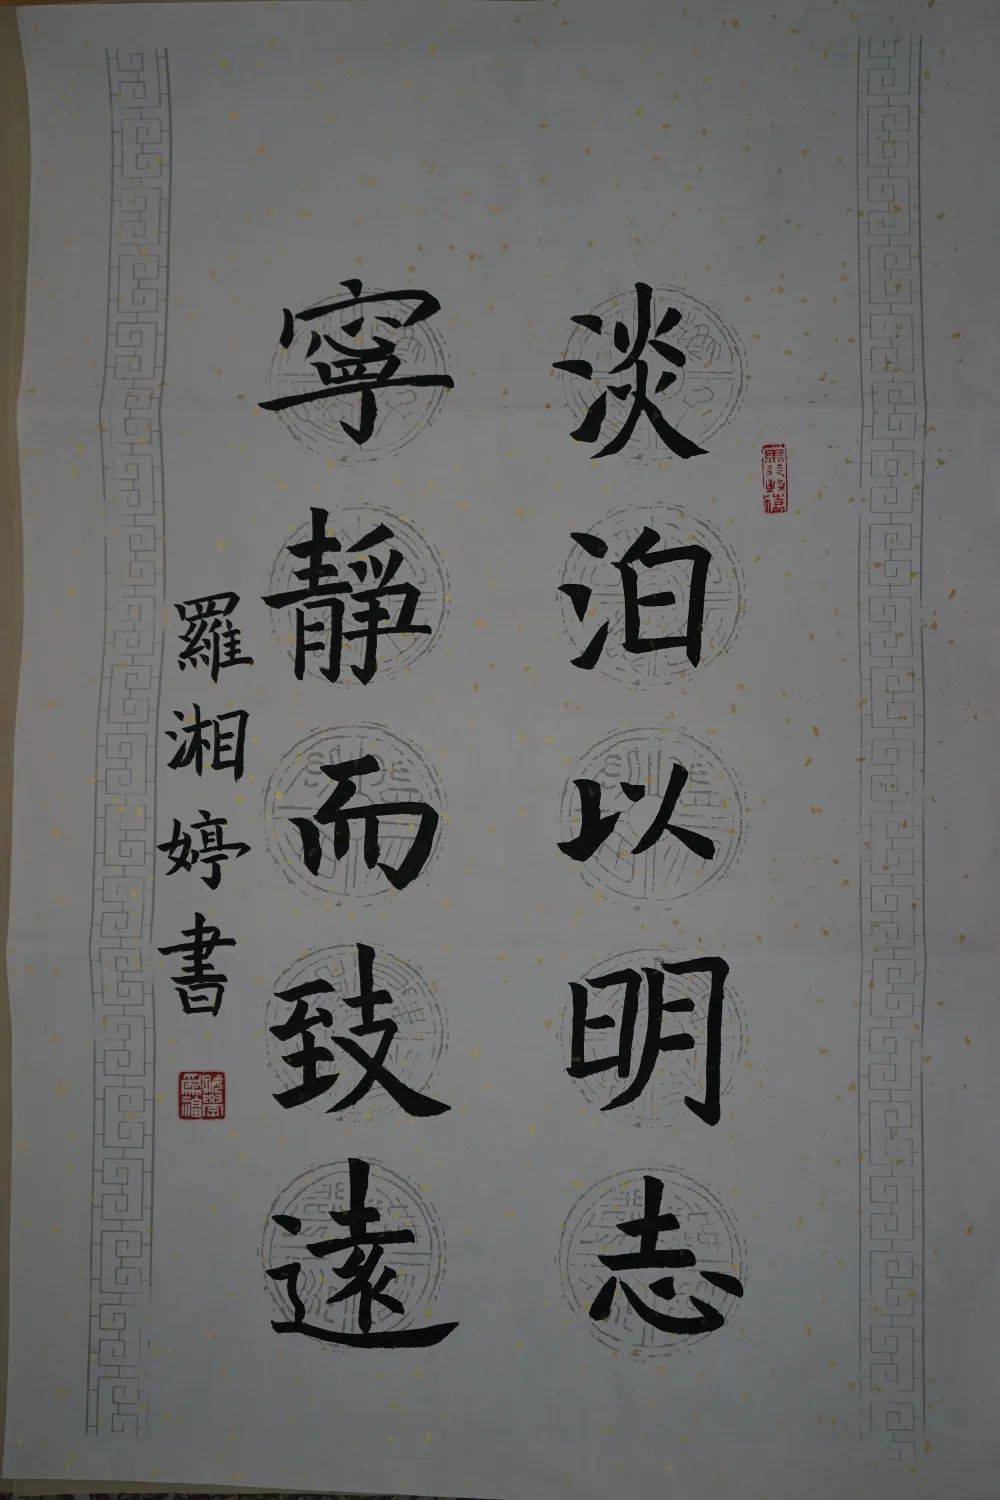 淡泊以明志
寧靜而致遠
羅湘婷書